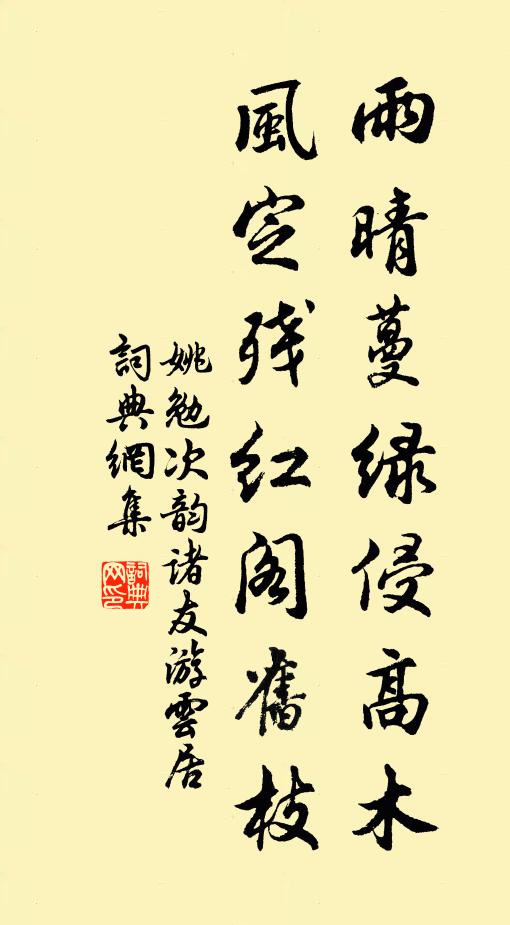 雨晴蔓緑侵髙木
風定残紅閣舊枝
姚勉次韵諸友游雲居
詞典網集
詞典网印